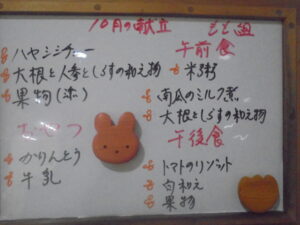 10月の献立
もも組
ハヤシシチュー
大根と人参としらすの和え物
果物(赤)
おやつ
かりんとう
牛乳
午前食
米粥
南瓜のミルク煮
大根としらすの和え物
午後食
トマトのリゾット
白和え
果物